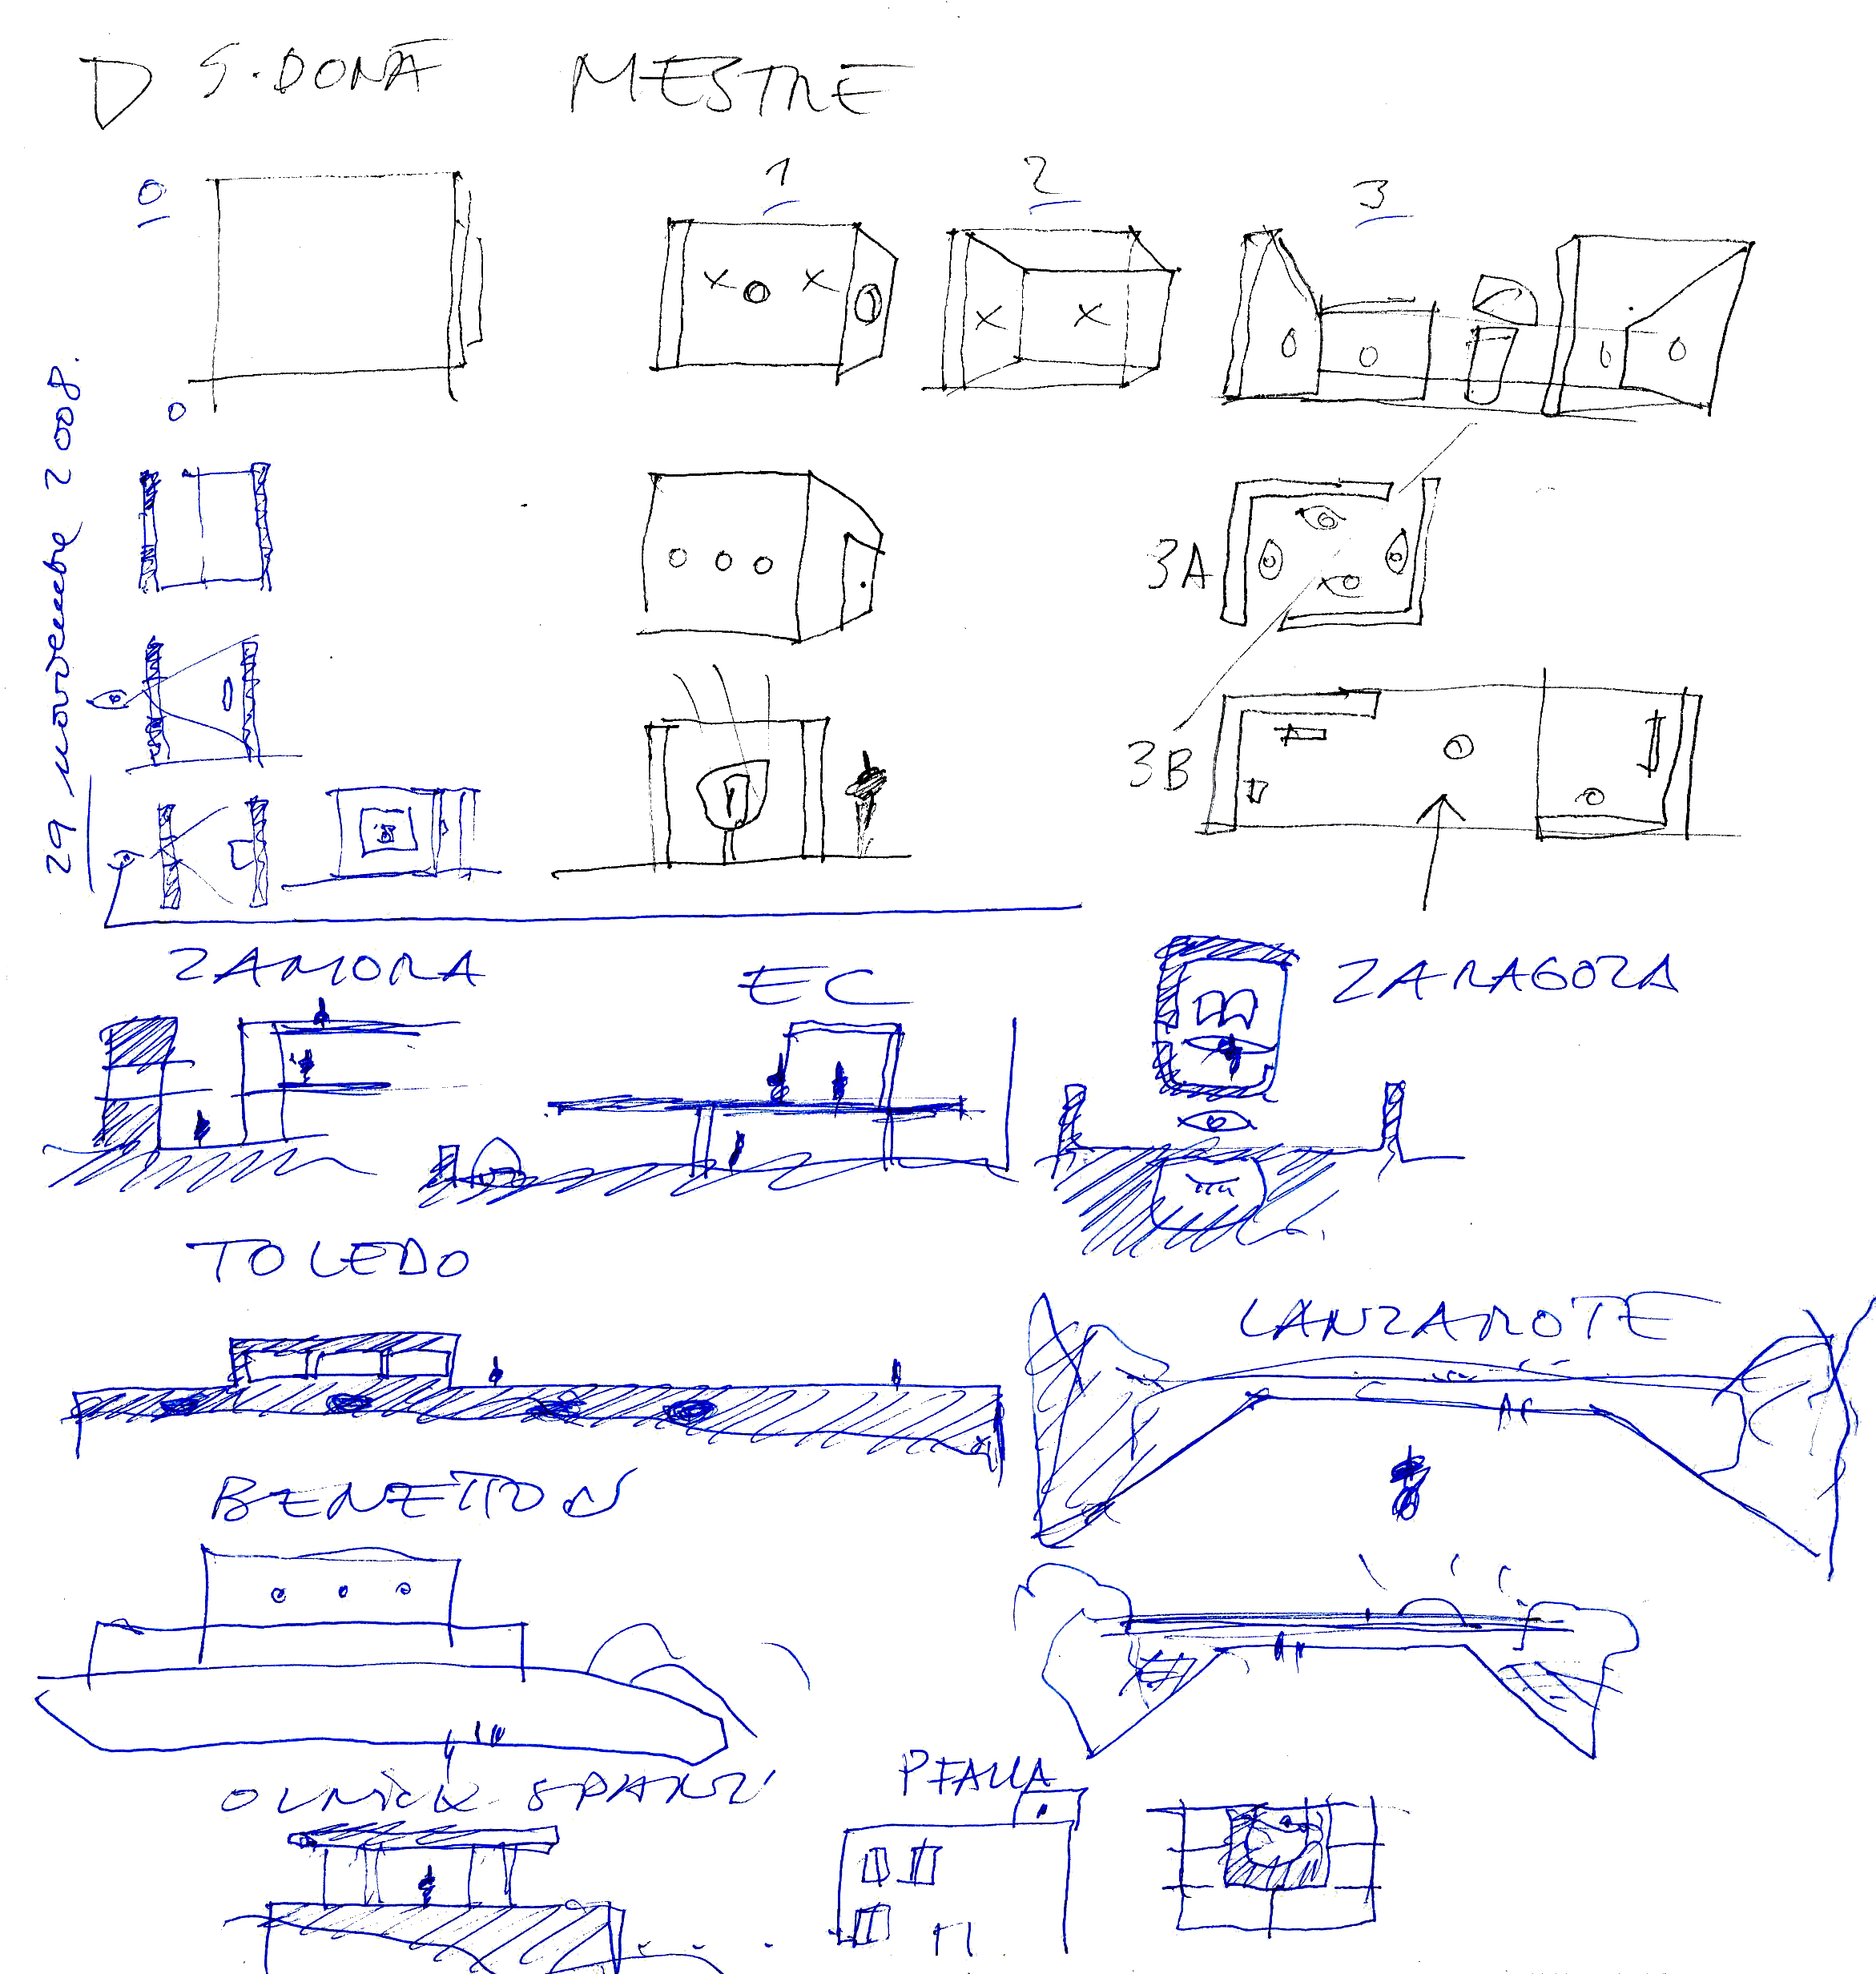 D S. DONÀ MESTRE
0
1
2
3
0
3A
3B
29 novembre 2008.
ZAMORA
EC
ZARAGOZA
TOLEDO
LANZAROTE
BENETTON
OLNICK SPANU